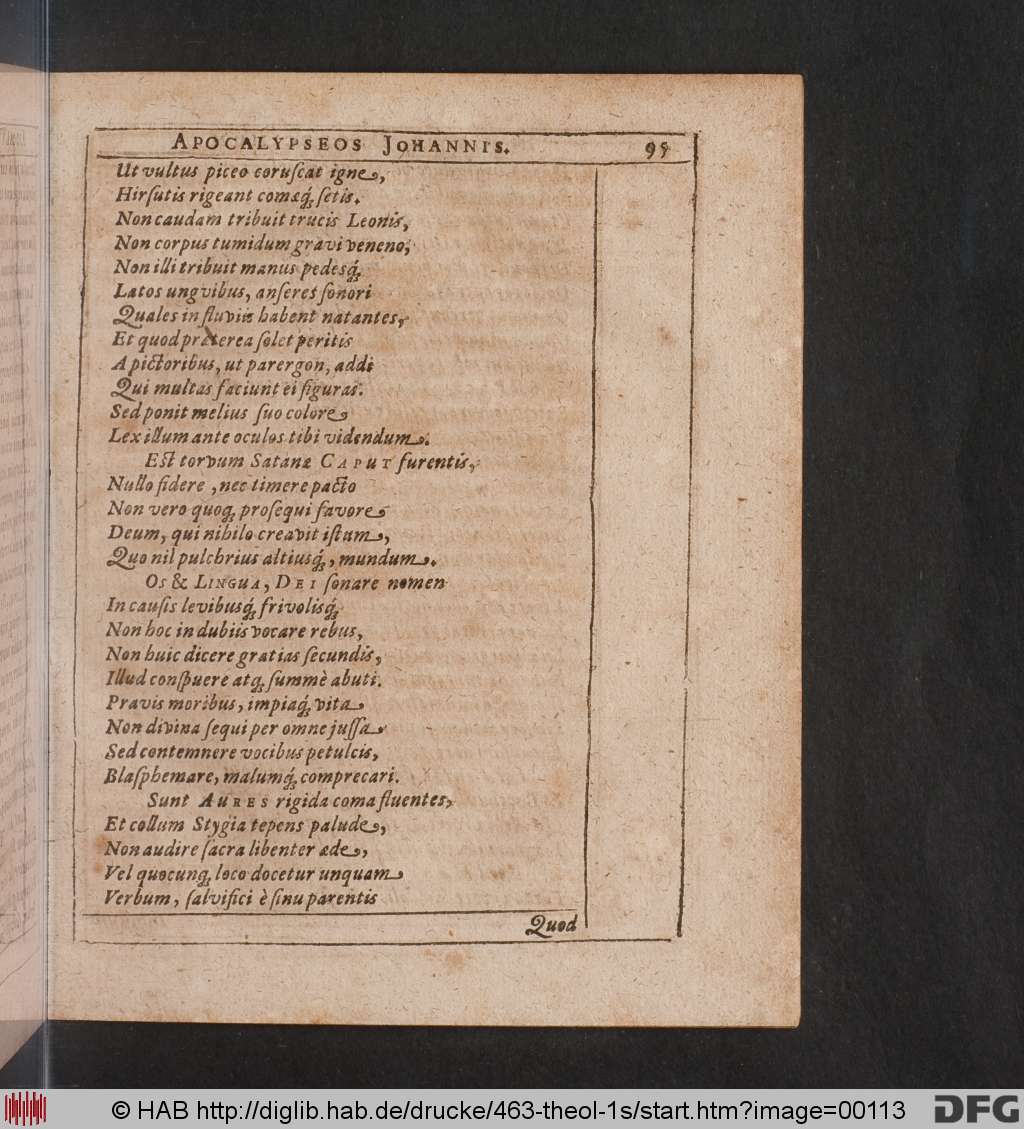 APOCALYPSEOS JOHANNIS. 95
Ut vultus piceo coruſcat igne,
Hirſutis rigeant comæq́; ſetis.
Non caudam tribuit trucis Leonis,
Non corpus tumidum gravi veneno,
Non illi tribuit manus pedesq́;
Latos ungvibus, anſeres ſonori
Quales in fluviis habent natantes,
Et quod præterea ſolet peritis
A pictoribus, ut parergon, addi
Qui multas faciunt ei figuras.
Sed ponit melius ſuo colore
Lex illum ante oculos tibi videndum.
Eſt torvum Satanæ CAPUT furentis,
Nullo fidere, nec timere pacto
Non vero quoq; proſequi favore
Deum, qui nihilo creavit iſtum,
Quo nil pulchrius altiusq́;, mundum.
Os & LINGUA, DEI ſonare nomen
In cauſis levibusq́; frivolisq́;
Non hoc in dubiis vocare rebus,
Non huic dicere gratias ſecundis,
Illud conſpuere atq; ſummè abuti.
Pravis moribus, impiaq́; vita
Non divina ſequi per omne juſſa
Sed contemnere vocibus petulcis,
Blaſphemare, malumq́; comprecari.
Sunt AURES rigida coma fluentes,
Et collum Stygia tepens palude,
Non audire ſacra libenter æde,
Vel quocunq; loco docetur unquam
Verbum, ſalvifici è ſinu parentis
Quod
© HAB http://diglib.hab.de/drucke/463-theol-1s/start.htm?image=00113
DFG